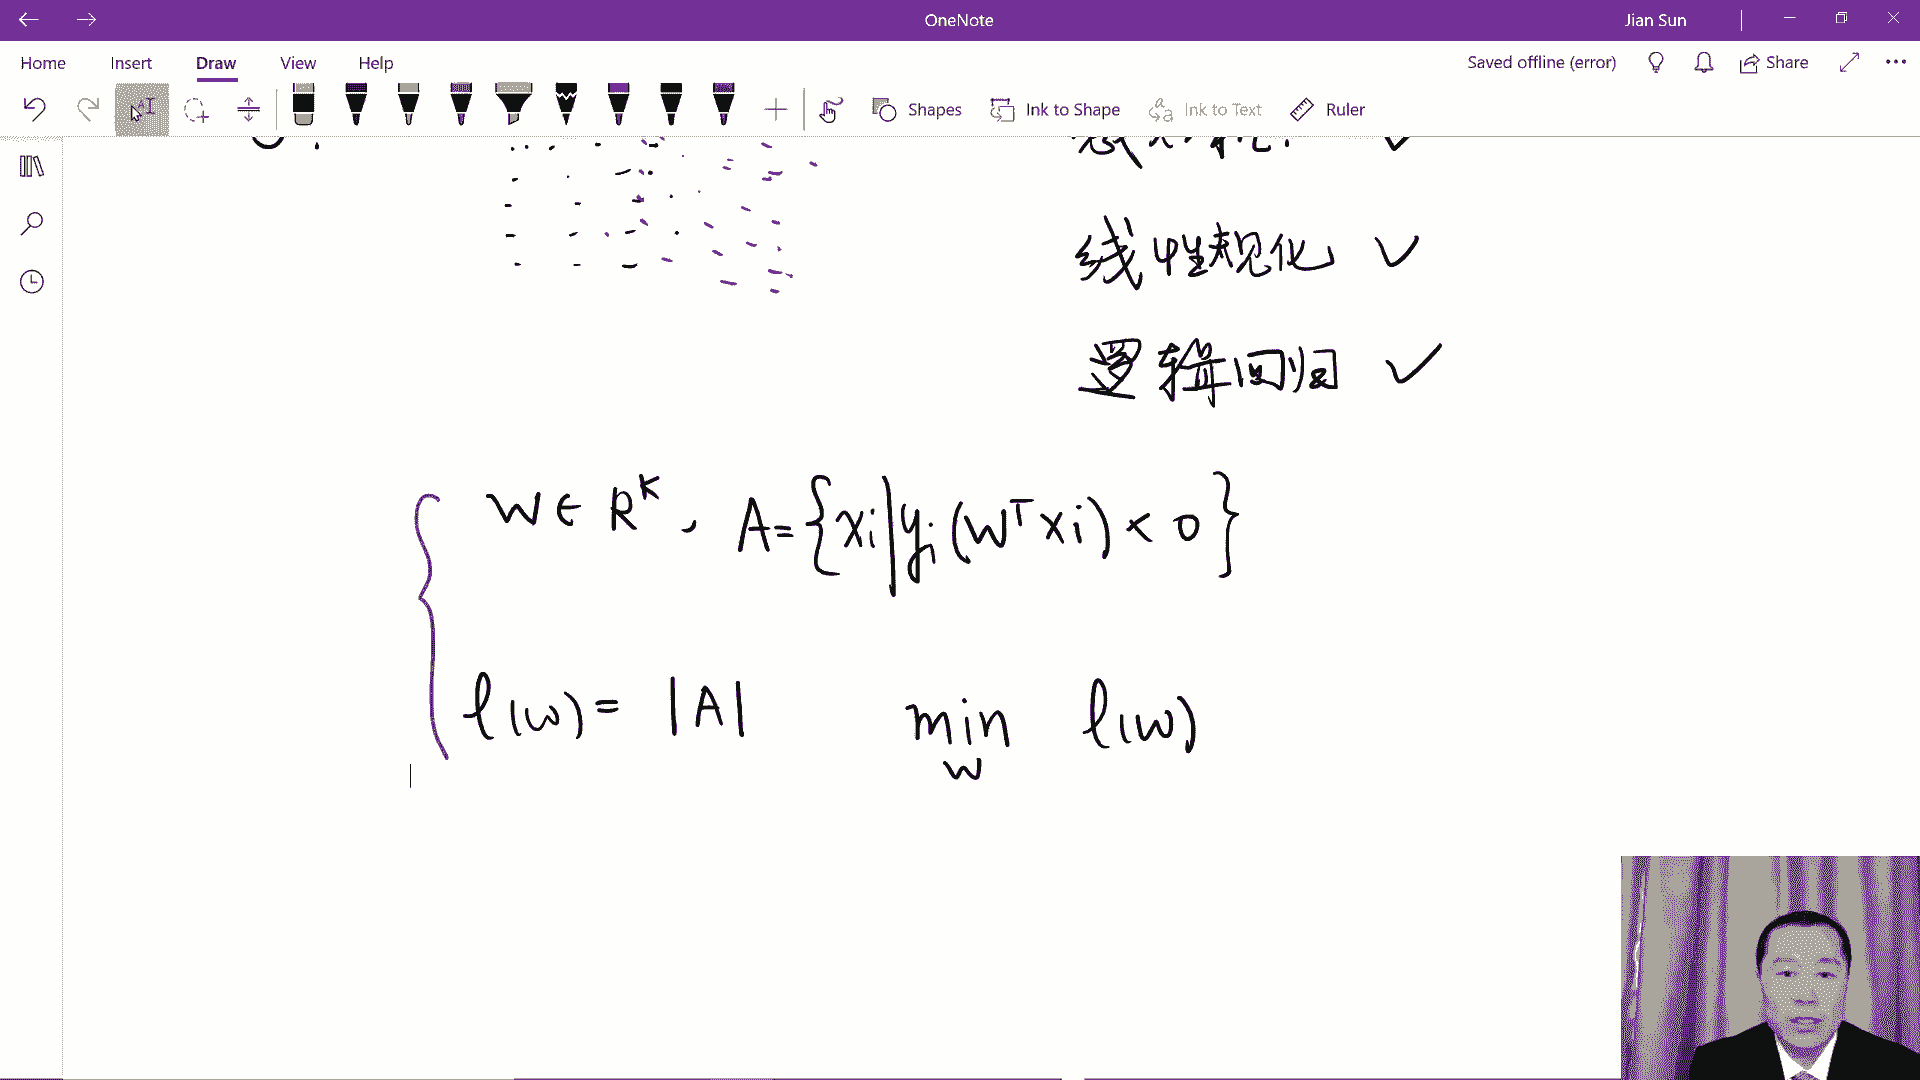 OneNote
Jian Sun
Home Insert Draw View Help
Saved offline (error) Share
Shapes Ink to Shape Ink to Text Ruler
线性规化 ✓
逻辑回归 ✓
w ∈ R^K, A = {xi | yi (w^T xi) < 0}
l(w) = |A| min l(w)
w